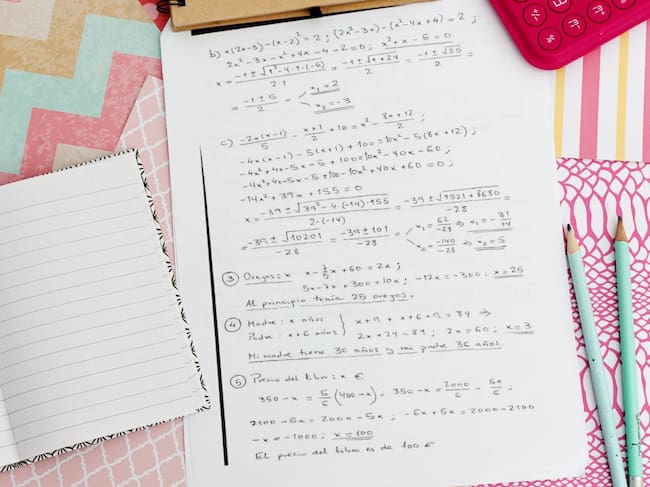 b) x(2x-3)-(x-2)² = 2 ; (2x²-3x)-(x²-4x+4) = 2 ;
2x²-3x-x²+4x-4-2=0 ; x²+x-6=0
x = (-1±√(1²-4·1·(-6)))/(2·1) = (-1±√(1+24))/2 = (-1±√25)/2 =
= (-1±5)/2 = x₁ = 2
x₂ = -3
c) (-2x(x-1))/5 - (x+1)/2 + 10 = x² - (8x+12)/2 ;
-4x(x-1)-5(x+1)+100=10x²-5(8x+12) ;
-4x²+4x-5x-5+100=10x²-40x-60 ;
-4x²+4x-5x-5+100-10x²+40x+60=0 ;
-14x²+39x+155=0
x = (-39±√(39²-4·(-14)·155))/(2·(-14)) = (-39±√(1521+8680))/-28 =
= (-39±√10201)/-28 = (-39±101)/-28 = x₁ = 62/-28 → x₁ = -31/14
x₂ = -140/-28 → x₂ = 5
③ Ovejas: x x - 7/5 x + 60 = 2x ;
5x-7x+300=10x ; -12x=-300 ; x=25
Al principio tenía 25 ovejas.
④ Madre: x años } x+9+x+6+9=84 ⇒
Padre: x+6 años } 2x+24=84 ; 2x=60 ; x=3
Mi madre tiene 30 años y mi padre 36 años.
⑤ Precio del libro: x €
350-x = 5/6 (400-x) ; 350-x = 2000/6 - 5x/6 ;
2100-6x=2000-5x ; -6x+5x=2000-2100
-x=-1000 ; x=100
El precio del libro es de 100 €